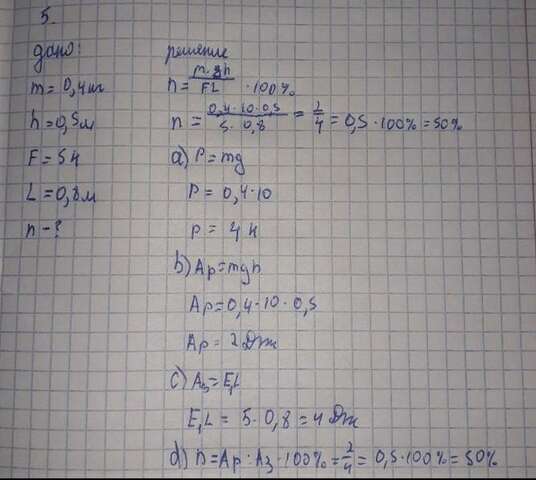 5.
дано:
m = 0,4 кг
h = 0,5 м
F = 5 Н
L = 0,8 м
n - ?
решение
n = m·gh / FL · 100%
n = 0,4·10·0,5 / 5·0,8 = 2/4 = 0,5·100% = 50%
a) P = mg
P = 0,4·10
p = 4 Н
b) Ap = mgh
Ap = 0,4·10·0,5
Ap = 2 Дж
c) Aз = F,L
F,L = 5·0,8 = 4 Дж
d) n = Ap : Aз · 100% = 2/4 = 0,5·100% = 50%